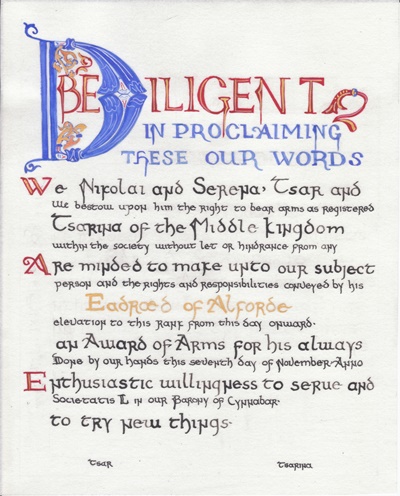 BE DILIGENT
IN PROCLAIMING
THESE OUR WORDS
We Nikolai and Serena, Tsar and
We bestow upon him the right to bear arms as registered
Tsarina of the Middle Kingdom
within the society without let or hindrance from any
Are minded to make unto our subject
person and the rights and responsibilities conveyed by his
Eadræd of Alforde
elevation to this rank from this day onward.
an Award of Arms for his always
Done by our hands this seventh day of November Anno
Enthusiastic willingness to serve and
Societatis L in our Barony of Cynnabar.
to try new things.
Tsar Tsarina